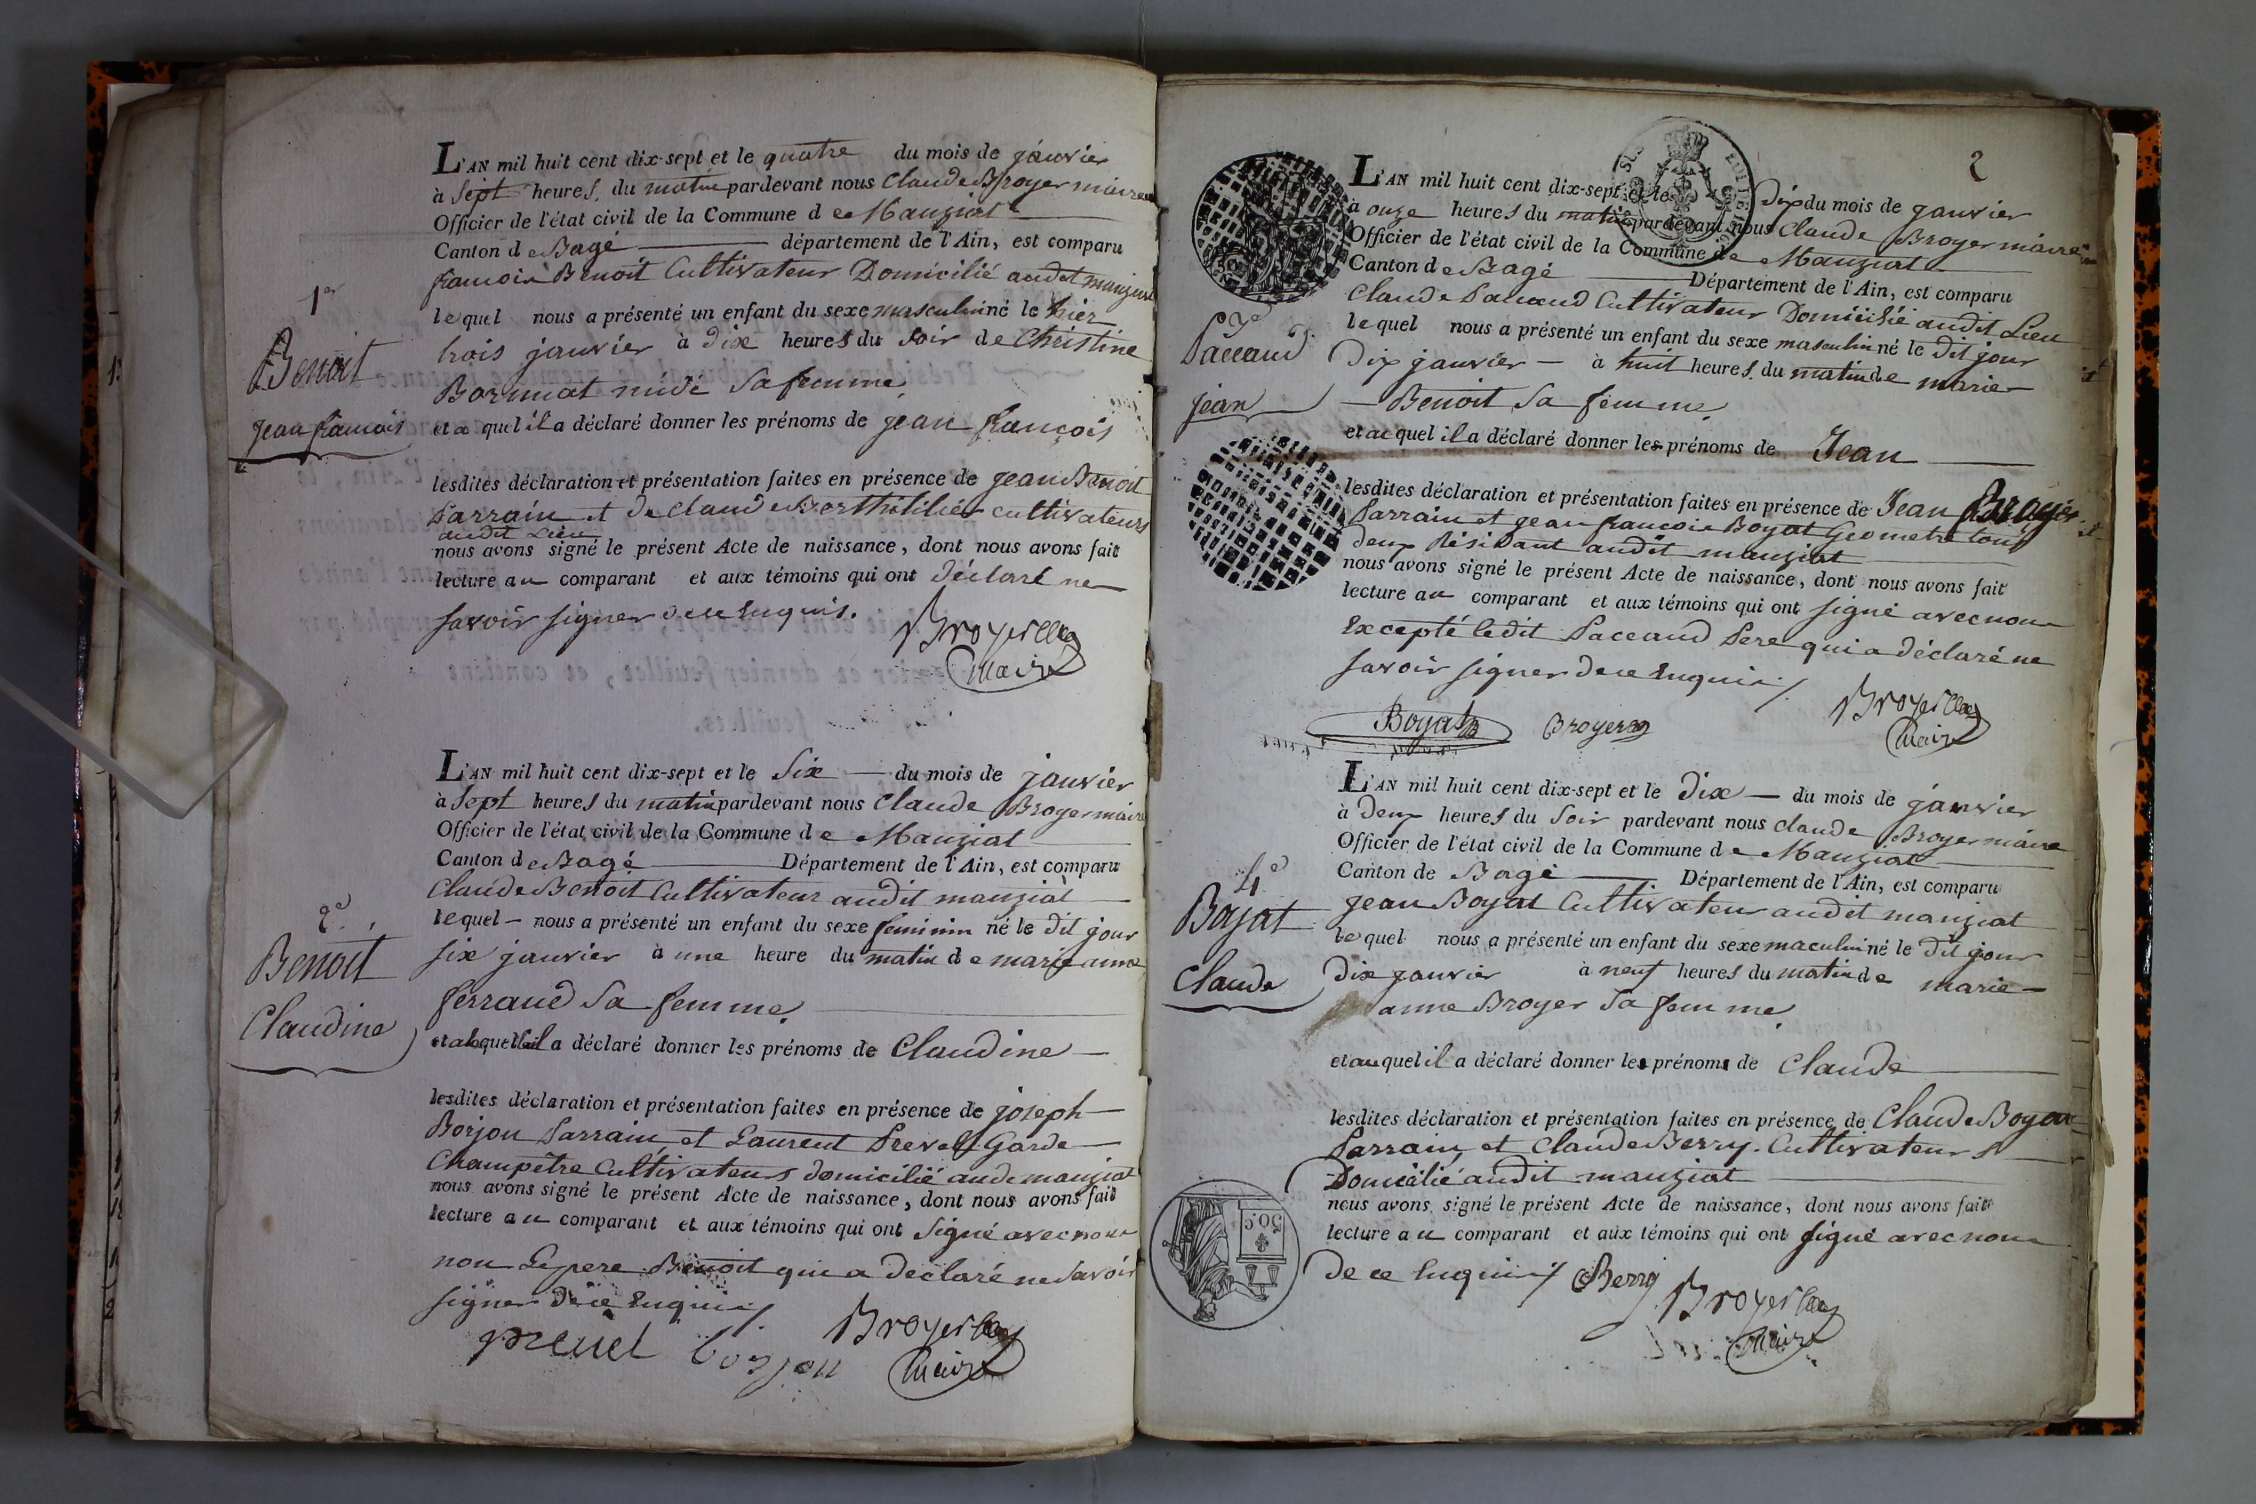 1er
Benoit
Jean francois
L'AN mil huit cent dix-sept et le quatre du mois de janvier
à sept heures du matin pardevant nous Claude Broyer maire
Officier de l'état civil de la Commune de Manziat
Canton de Bagé département de l'Ain, est comparu
francois Benoit Cultivateur Domicilié audit manziat
lequel nous a présenté un enfant du sexe masculin né le hier
trois janvier à dix heures du soir de Christine
sa femme
et a quel il a déclaré donner les prénoms de jean francois
lesdites déclaration et présentation faites en présence de jean Benoit
Parrain et de Claude cultivateurs
audit Lieu
nous avons signé le présent Acte de naissance, dont nous avons fait
lecture au comparant et aux témoins qui ont déclaré ne
savoir signer de ce Enquis.
Broyer
Maire
2e
Benoit
Claudine
L'AN mil huit cent dix-sept et le Six du mois de janvier
à Sept heures du matin pardevant nous Claude Broyer maire
Officier de l'état civil de la Commune de Manziat
Canton de Bagé Département de l'Ain, est comparu
Claude Benoit Cultivateur audit manziat
lequel nous a présenté un enfant du sexe feminin né le dit jour
six janvier à une heure du matin de marie anne
ferraud sa femme
et a laquelle il a déclaré donner les prénoms de Claudine
lesdites déclaration et présentation faites en présence de joseph
Borjon Parrain et Laurent Prevel Garde
Champêtre Cultivateurs domicilié audi manziat
nous avons signé le présent Acte de naissance, dont nous avons fait
lecture au comparant et aux témoins qui ont Signé avec nous
non Le pere Benoit qui a declaré ne savoir
signer de ce Enquis
prevel borjon Broyer
Maire
2
3e
Paccaud
jean
L'AN mil huit cent dix-sept et le Dix du mois de janvier
à onze heures du matin pardevant nous Claude Broyer maire
Officier de l'état civil de la Commune de Manziat
Canton de Bagé Département de l'Ain, est comparu
Claude Paccaud Cultivateur Domicilié audit Lieu
lequel nous a présenté un enfant du sexe masculin né le dit jour
Dix janvier à huit heures du matin de marie
Benoit sa femme
et au quel il a déclaré donner les prénoms de Jean
lesdites déclaration et présentation faites en présence de Jean Broyer
Parrain et jean francois Boyat Geometre tous
deux Résidant audit manziat
nous avons signé le présent Acte de naissance, dont nous avons fait
lecture au comparant et aux témoins qui ont signé avec nous
Excepté ledit Paccaud Pere qui a déclaré ne
savoir signer de ce Enquis
Boyat Broyer Broyer
Maire
4e
Boyat
Claude
L'AN mil huit cent dix-sept et le Dix du mois de janvier
à Deux heures du Soir pardevant nous claude Broyer maire
Officier de l'état civil de la Commune de Manziat
Canton de Bagé Département de l'Ain, est comparu
jean Boyat Cultivateur audit manziat
lequel nous a présenté un enfant du sexe maculin né le dit jour
Dix janvier à neuf heures du matin de marie
anne Broyer sa femme
et au quel il a déclaré donner les prénoms de Claude
lesdites déclaration et présentation faites en présence de Claude Boyat
Parrain et Claude Berry Cultivateurs
Domicilié audit manziat
nous avons signé le présent Acte de naissance, dont nous avons fait
lecture au comparant et aux témoins qui ont signé avec nous
de ce Enquis Berry Broyer
Maire
50 C.